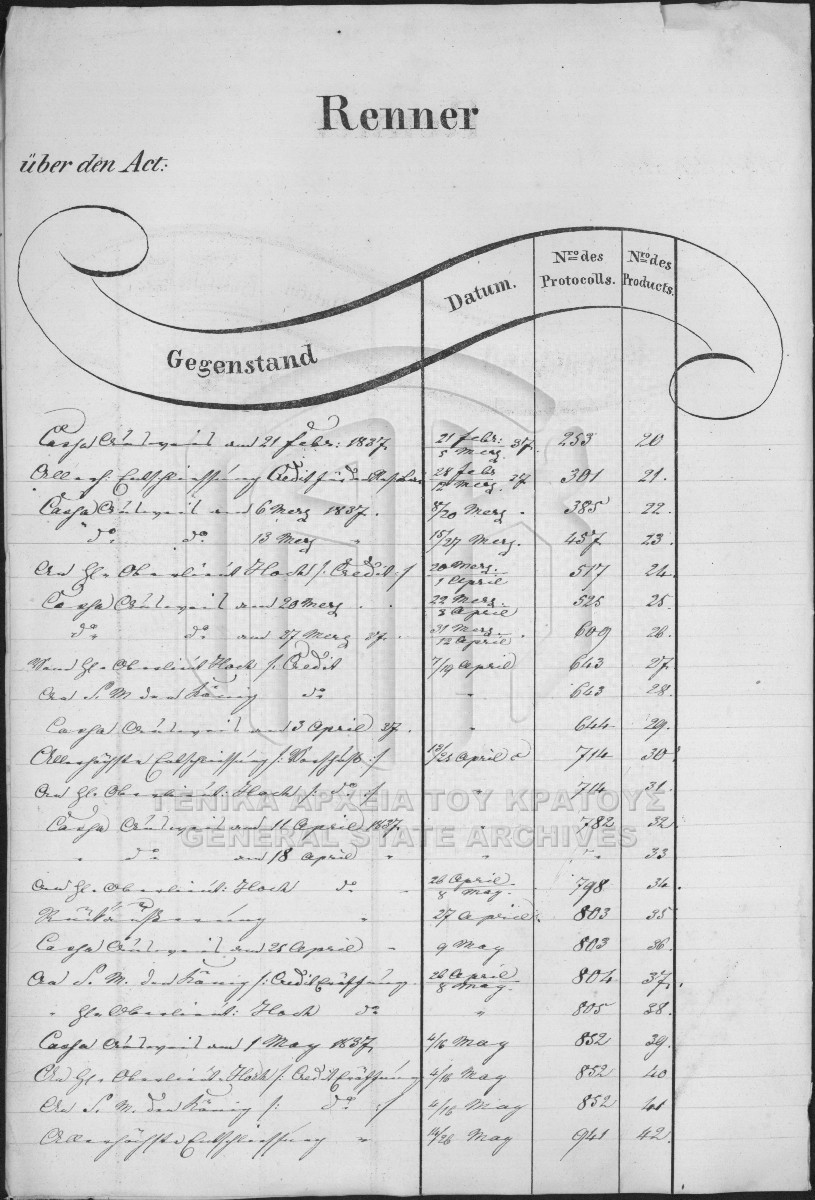 Renner
über den Act:
Gegenstand Datum. Nro des Protocolls. Nro des Products.
Cassa Ausweis am 21 Febr: 1837. 21 febr: / 5 Merz 37. 253 20
Allerh. Entschliessung Credit für 28 febr / 12 Merz. 37 301 21.
Cassa Ausweis am 6 Merz 1837. 8/20 Merz. 385 22.
do. do. 13 Merz " 15/27 Merz. 457 23.
An H. Oberlieut. Hoch /: Credit :/ 20 Merz. / 1 April 517 24.
Cassa Ausweis am 20 Merz. 22 Merz. / 3 April 525 25.
do. do. am 27 Merz 37. 31 Merz. / 12 April. 609 26.
Vom H. Oberlieut Hoch /: Credit 7/19 April 643 27.
An S. M. den König do " 643 28.
Cassa Ausweis am 3 April 37. " 644 29.
Allerhöchste Entschliessung /: Vorschuß :/ 13/25 April 714 30
An H. Oberlieut: Hoch /: do :/ " 714 31.
Cassa Ausweis am 11 April 1837. " 782 32
" do am 18 April " " " 33
An H. Oberlieut: Hoch do " 26 April / 8 May. 798 34.
Rückäußerung " 27 April. 803 35
Cassa Ausweis am 25 April " 9 May 803 36.
An S. M. den König /: Crediteröffnung. 26 April / 8 May. 804 37.
" H. Oberlieut: Hoch do " 805 38.
Cassa Ausweis am 1 May 1837. 4/16 May 852 39.
An H. Oberlieut. Hoch /: Crediteröffnung 4/16 May 852 40
An S. M. den König /: do :/ 4/16 May 852 41
Allerhöchste Entschliessung " 14/26 May 941 42.
ΓΕΝΙΚΑ ΑΡΧΕΙΑ ΤΟΥ ΚΡΑΤΟΥΣ
GENERAL STATE ARCHIVES